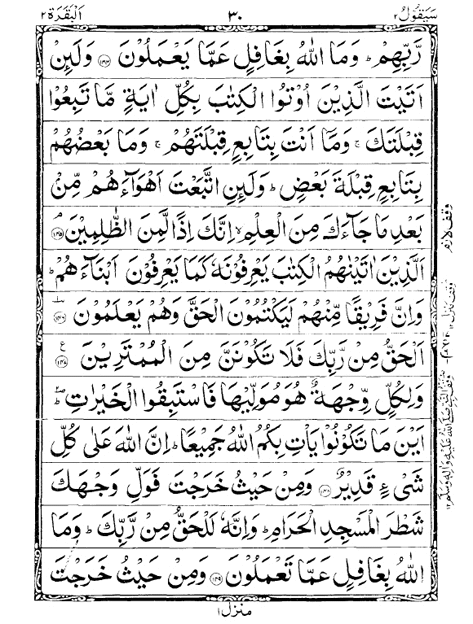 سَيَقُوْلُ ٢ ٣٠ اَلْبَقَرَة ٢
رَّبِّهِمْ ؕ وَمَا اللّٰهُ بِغَافِلٍ عَمَّا يَعْمَلُوْنَ ﴿۱۴۴﴾ وَلَئِنْ
اَتَيْتَ الَّذِيْنَ اُوْتُوا الْكِتٰبَ بِكُلِّ اٰيَةٍ مَّا تَبِعُوْا
قِبْلَتَكَ ۚ وَمَاۤ اَنْتَ بِتَابِعٍ قِبْلَتَهُمْ ۚ وَمَا بَعْضُهُمْ
بِتَابِعٍ قِبْلَةَ بَعْضٍ ؕ وَلَئِنِ اتَّبَعْتَ اَهْوَآءَهُمْ مِّنْۢ
بَعْدِ مَا جَآءَكَ مِنَ الْعِلْمِ ۙ اِنَّكَ اِذًا لَّمِنَ الظّٰلِمِيْنَ ﴿۱۴۵﴾
اَلَّذِيْنَ اٰتَيْنٰهُمُ الْكِتٰبَ يَعْرِفُوْنَهٗ كَمَا يَعْرِفُوْنَ اَبْنَآءَهُمْ ؕ
وَاِنَّ فَرِيْقًا مِّنْهُمْ لَيَكْتُمُوْنَ الْحَقَّ وَهُمْ يَعْلَمُوْنَ ﴿۱۴۶﴾
اَلْحَقُّ مِنْ رَّبِّكَ فَلَا تَكُوْنَنَّ مِنَ الْمُمْتَرِيْنَ ﴿۱۴۷﴾
وَلِكُلٍّ وِّجْهَةٌ هُوَ مُوَلِّيْهَا فَاسْتَبِقُوا الْخَيْرٰتِ ؕ
اَيْنَ مَا تَكُوْنُوْا يَاْتِ بِكُمُ اللّٰهُ جَمِيْعًا ؕ اِنَّ اللّٰهَ عَلٰى كُلِّ
شَىْءٍ قَدِيْرٌ ﴿۱۴۸﴾ وَمِنْ حَيْثُ خَرَجْتَ فَوَلِّ وَجْهَكَ
شَطْرَ الْمَسْجِدِ الْحَرَامِ ؕ وَاِنَّهٗ لَلْحَقُّ مِنْ رَّبِّكَ ؕ وَمَا
اللّٰهُ بِغَافِلٍ عَمَّا تَعْمَلُوْنَ ﴿۱۴۹﴾ وَمِنْ حَيْثُ خَرَجْتَ
منزل ١
وقف لازم